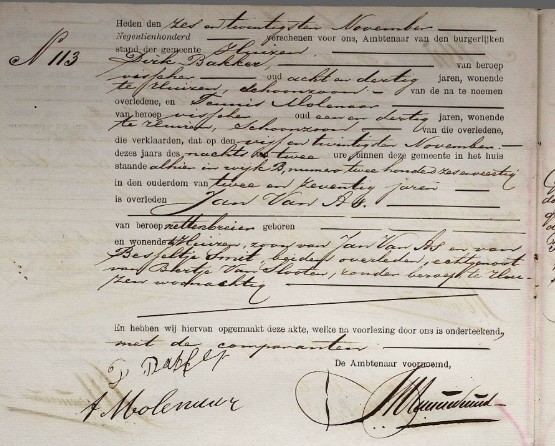 Nº 113
Heden den zes en twintigsten November
Negentienhonderd verschenen voor ons, Ambtenaar van den burgerlijken
stand der gemeente Huizen,
Dirk Bakker, van beroep
visscher oud acht en dertig jaren, wonende
te Huizen, schoonzoon van de na te noemen
overledene, en Teunis Molenaar
van beroep visscher oud een en dertig jaren, wonende
te Huizen, schoonzoon, van die overledene,
die verklaarden, dat op den vijf en twintigsten November
dezes jaars des nachts te twee ure, binnen deze gemeente in het huis
staande alhier in wijk B, numero twee honderd zes en veertig
in den ouderdom van twee en zeventig jaren
is overleden Jan Van As.
van beroep nettenbreier geboren
en wonende Huizen, zoon van Jan Van As en van
Smit, beiden overleden, echtgenoot
van Bertje Van Slooten, zonder beroep te Hui-
zen woonachtig
En hebben wij hiervan opgemaakt deze akte, welke na voorlezing door ons is onderteekend,
met de comparanten
De Ambtenaar voornoemd,
D Bakker
t Molenaar